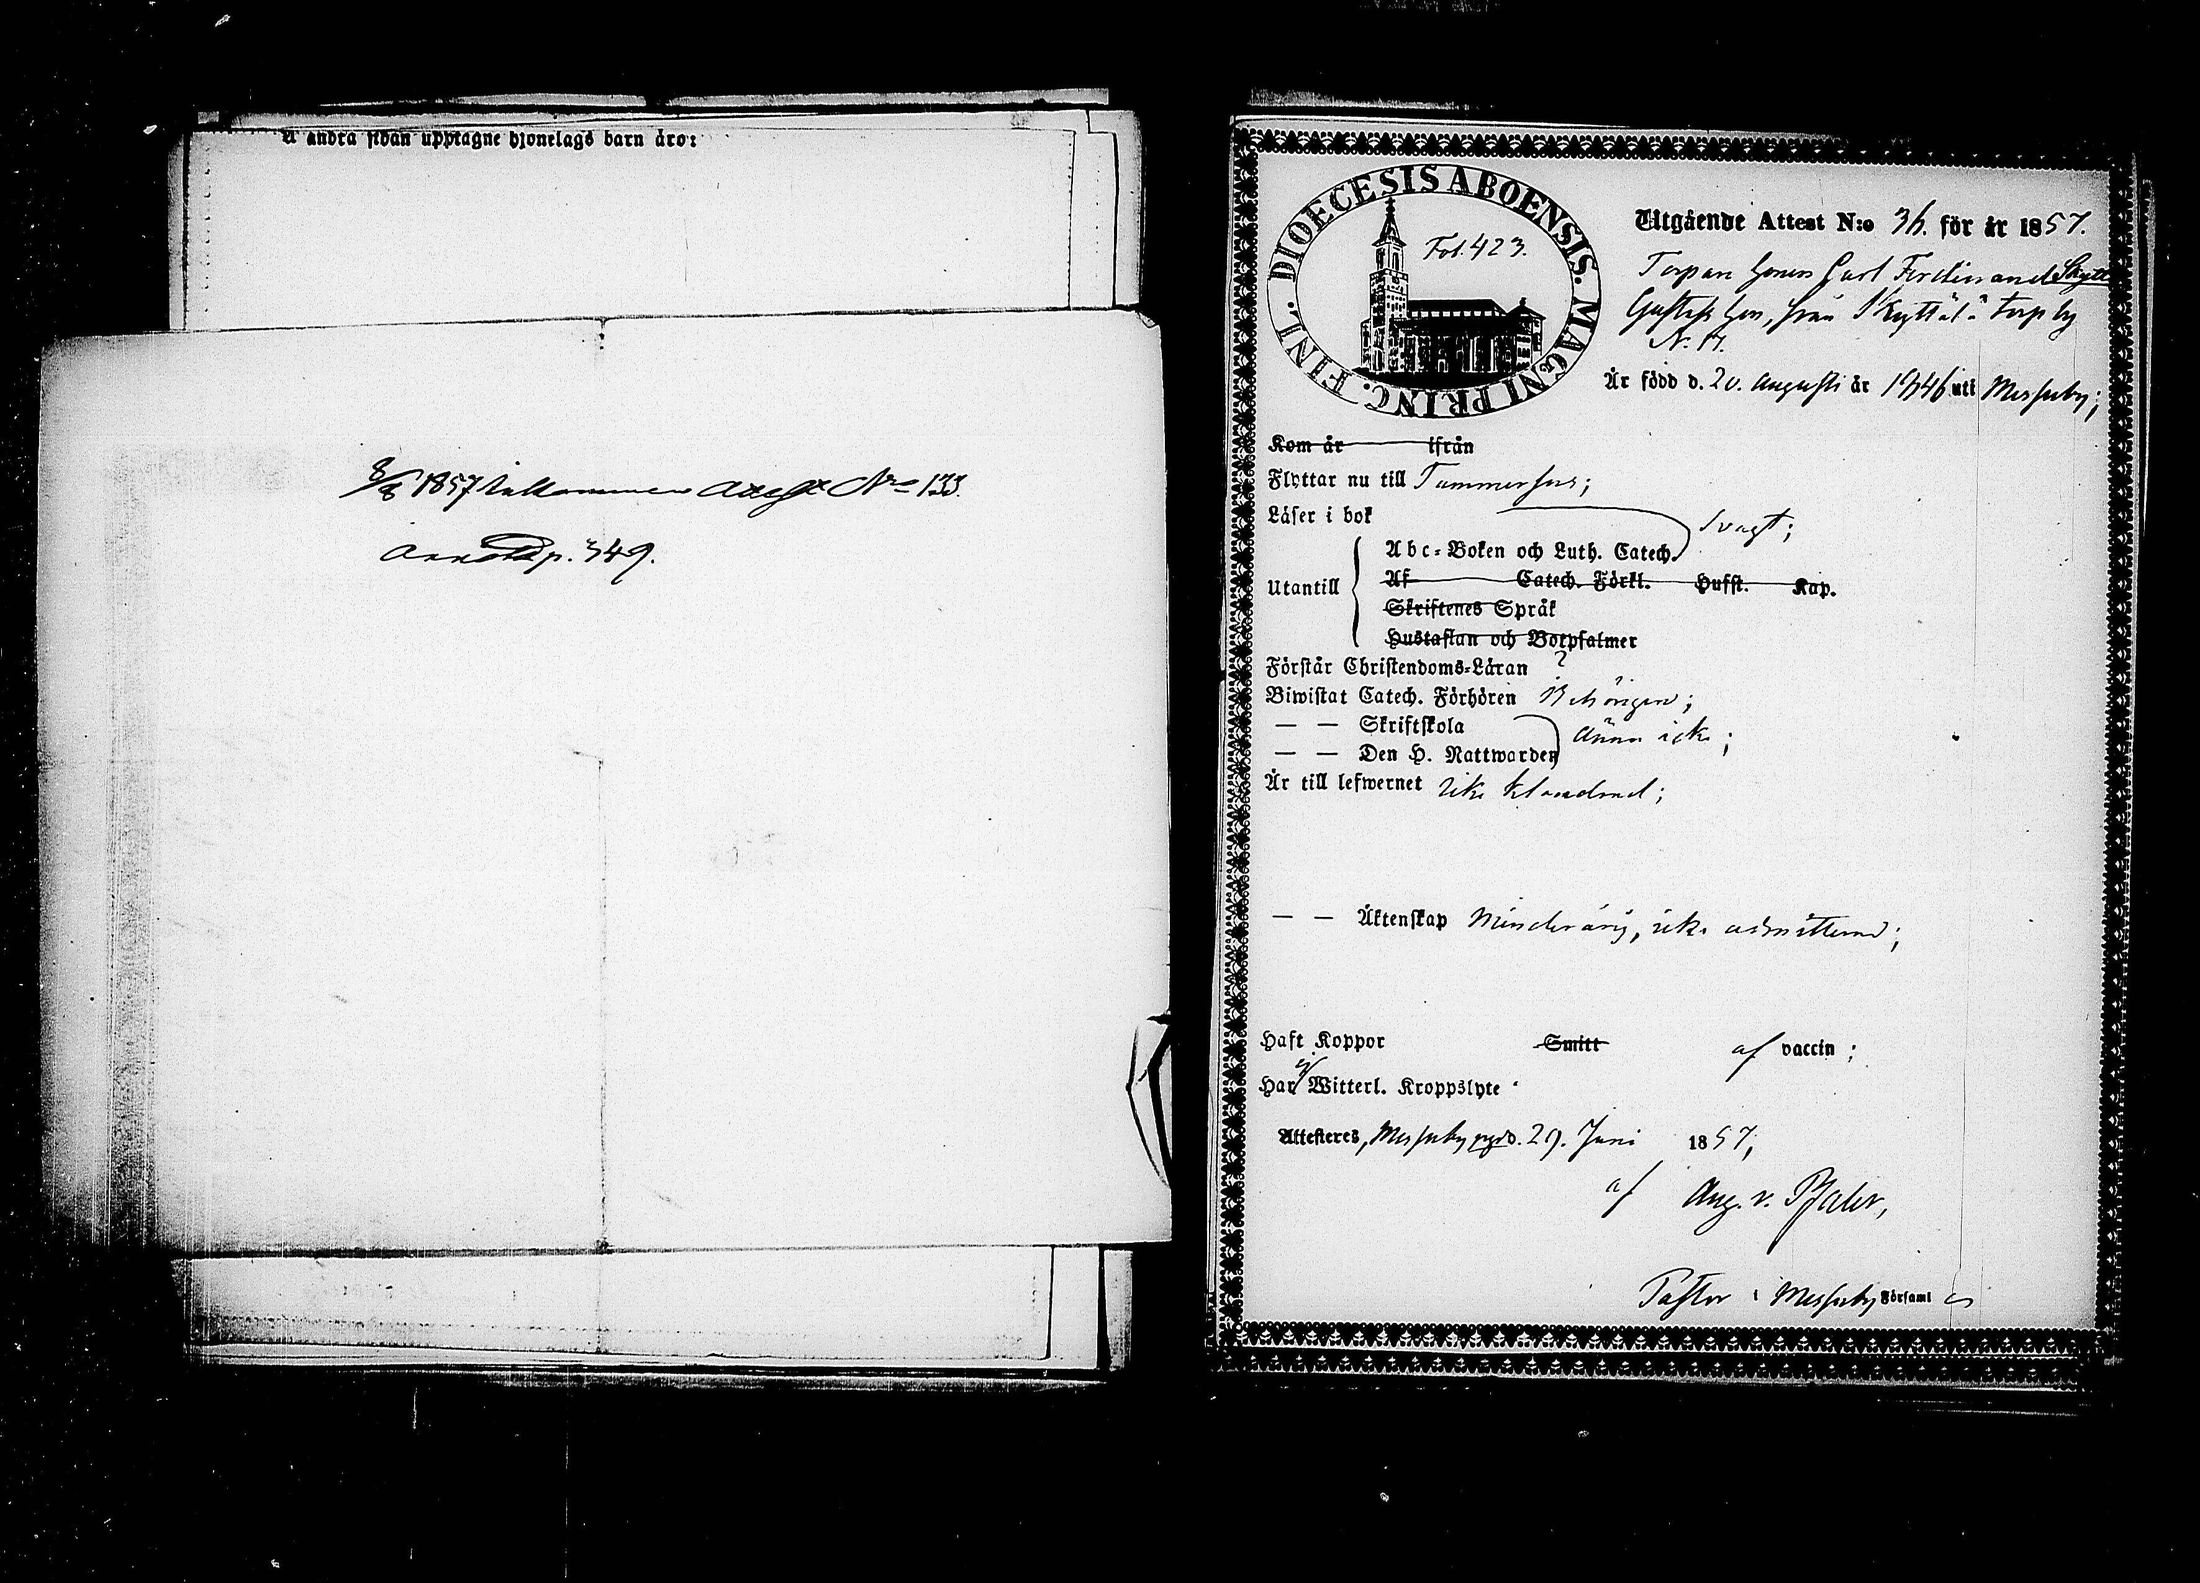 å andra sidan upptagne hjonelags barn äro:
8/8 1857 inkommen Attest No 133.
p. 349.
DIOECESIS ABOENSIS. MAGNI PRINC. FINL.
Fol. 423.
Utgående Attest N:o 36. för år 1857.
Torpare Sonen Carl Ferdinand Skytte
Gustafs Son, från Skyttälä torp by
N. 17.
Är född d. 20. Augusti år 1846 uti Messuby;
Kom år ifrån
Flyttar nu till Tammerfors;
Läser i bok svagt;
Utantill
Abc-Boken och Luth. Catech.
Af Catech. Förkl. Husst. Kap.
Skriftenes Språk
Hustaflan och Botpsalmer
Förstår Christendoms-Läran ?
Biwistat Catech. Förhören Behörigen;
— — Skriftskola ännu icke;
— — Den H. Nattwarden
Är till lefwernet icke klandrad;
— — Äktenskap Minderårig, icke admitterad;
Haft Koppor Smitt af vaccin;
Har ej Witterl. Kroppslyte
Attesteres, Messuby pgd d. 29. Juni 1857,
af Aug. v. Pfaler,
Pastor i Messuby Församl